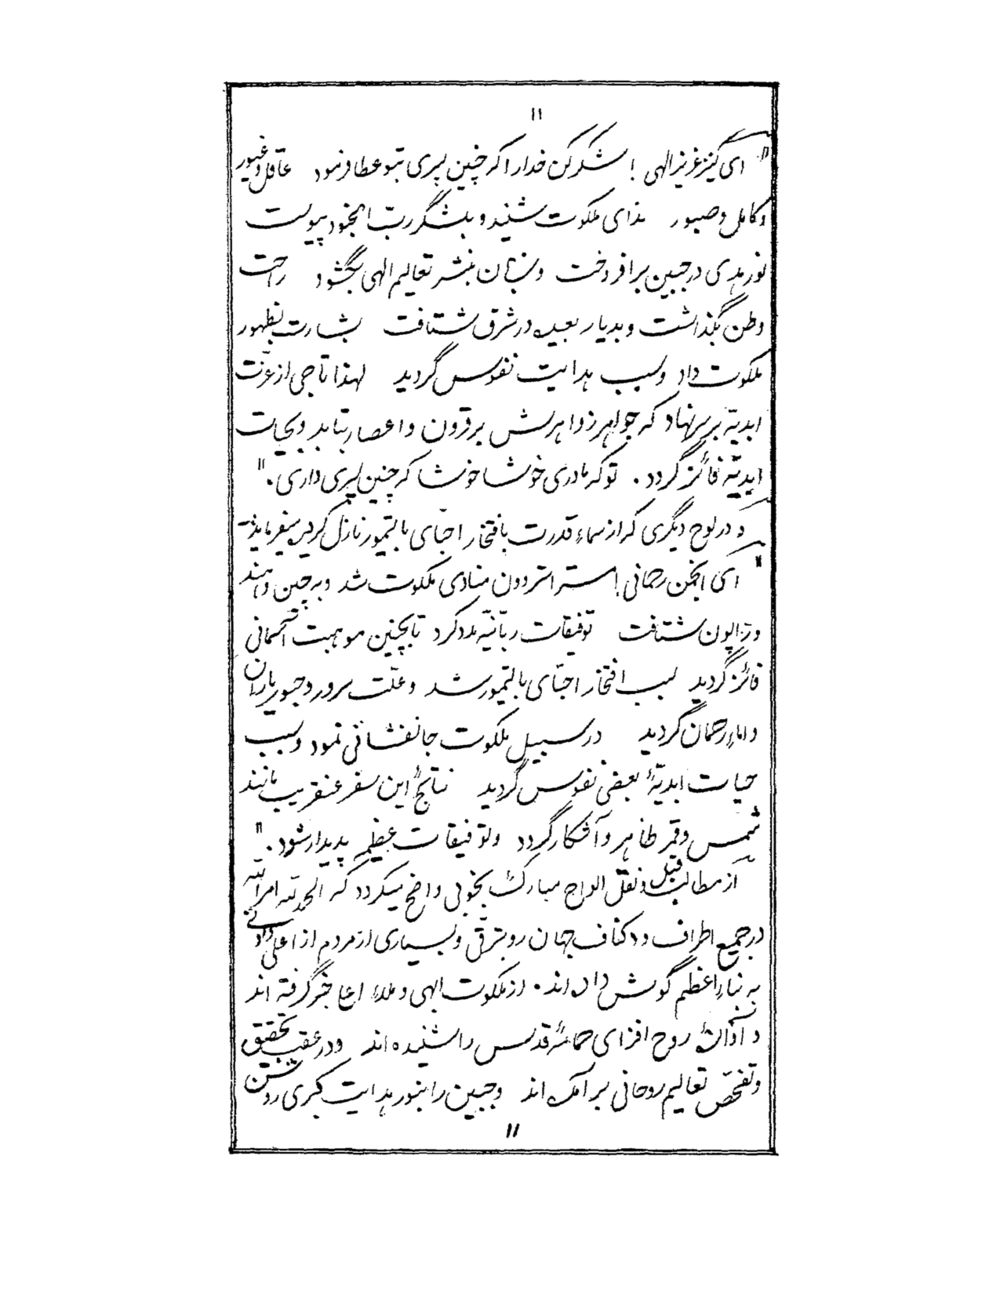 ۱۱
" ای کنیز عزیز الهی ! شکر کن خدا را که چنین پسری بتو عطا فرمود عاقل و غیور
و کامل و صبور ندای ملکوت شنید و بلشگر ربّ الجنود پیوست
نور هدی در جبین برافروخت و لسان بنشر تعالیم الهی بگشود راحت
وطن بگذاشت و بدیار بعیده در شرق شتافت بشارت بظهور
ملکوت داد و سبب هدایت نفوس گردید لهذا تاجی از عزّت
ابدیّه بر سر نهاد که جواهر زواهرش بر قرون و اعصار بتابد و بحیات
ابدیّه فائز گردد . تو که مادری خوشا خوشا که چنین پسری داری . "
و در لوح دیگری که از سماء قدرت بافتخار احبّای بالتیمور نازل گردیده میفرمایند
" ای انجمن رحمانی ! مستر استردون منادی ملکوت شد و به چین و هند
و ژاپون شتافت توفیقات ربّانیّه مدد کرد تا بچنین موهبت آسمانی
فائز گردید سبب افتخار احبّای بالتیمور شد و علّت سرور و حبور یاران
و اماء رحمان گردید در سبیل ملکوت جانفشانی نمود و سبب
حیات ابدیّهٔ بعضی نفوس گردید نتائج این سفر عنقریب مانند
شمس و قمر ظاهر و آشکار گردد و توفیقات عظیمه پدیدار شود . "
از مطالب قبل و نقل الواح مبارکه بخوبی واضح میگردد که الحمد لله امر الله
در جمیع اطراف و اکناف جهان رو بترقّی و بسیاری از مردم از اعلی و ادانی
به نباء اعظم گوش داده اند . از ملکوت ابهی و ملاء اعلا خبر گرفته اند
و آواز روح افزای حمامهٔ قدس را شنیده اند و در عقب تحقیق
و تفحّص تعالیم روحانی برآمده اند و جبین را بنور هدایت کبری روشن
۱۱